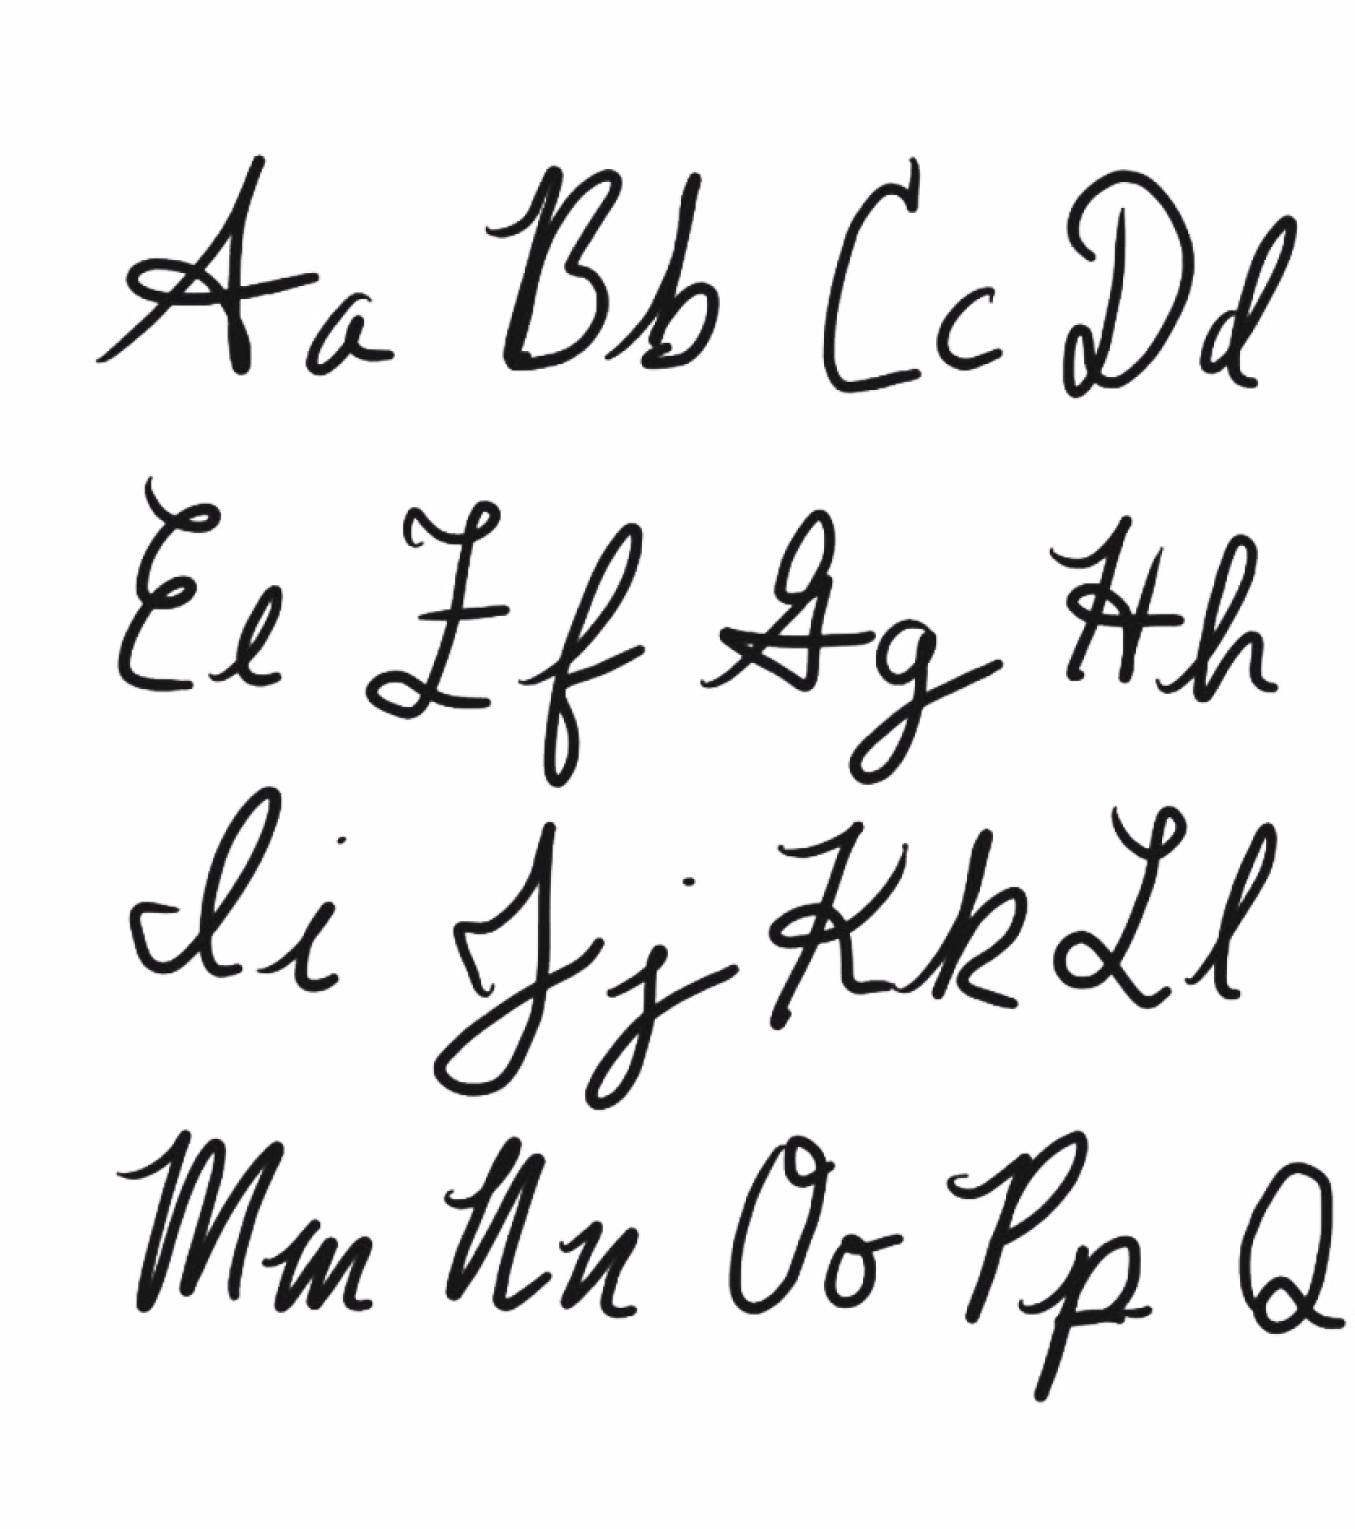 Aa Bb Cc Dd
Ee Ff Gg Hh
Ii Jj Kk Ll
Mm Nn Oo Pp Q